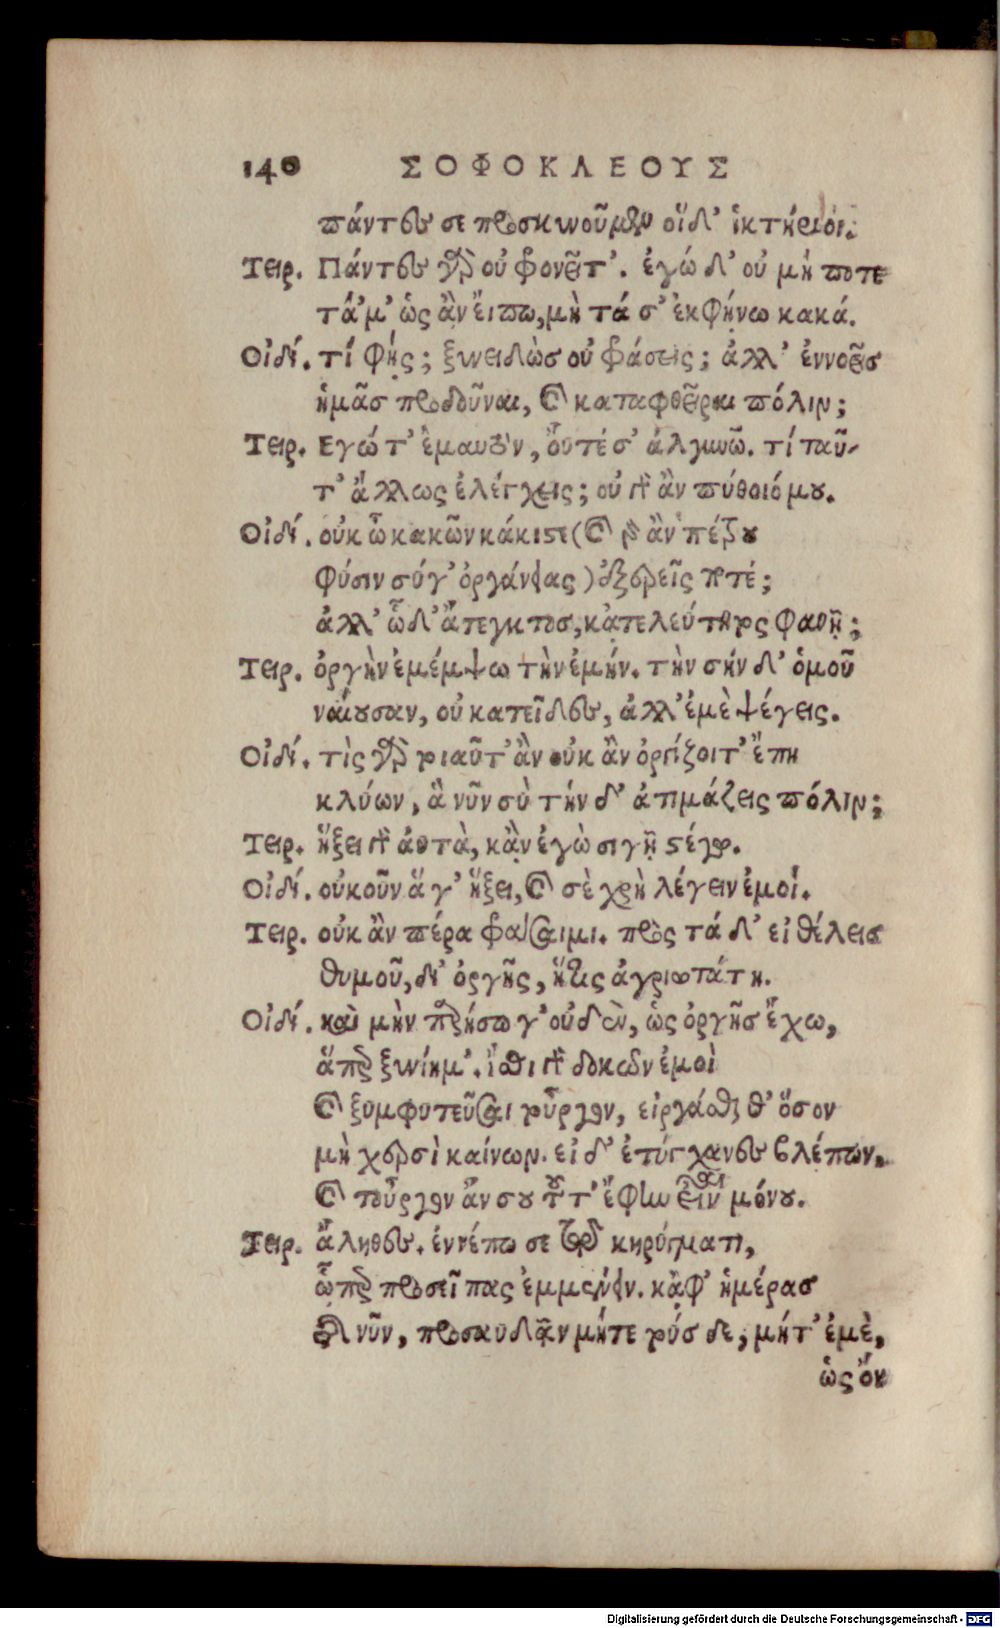 140 ΣΟΦΟΚΛΕΟΥΣ
πάντες σε προσκυνοῦμεν οἵδ' ἱκτήριοι.
Τειρ. Πάντες γὰρ οὐ φονεῖτ'. ἐγώ δ' οὐ μή ποτε
τἄμ' ὡς ἂν εἴπω, μὴ τά σ' ἐκφήνω κακά.
Οἰδί. τί φῄς; ξυνειδὼσ οὐ φάσεις; ἀλλ' ἐννοεῖσ
ἡμᾶσ προδοῦναι, καὶ καταφθεῖραι πόλιν;
Τειρ. Εγώ τ' ἐμαυτὸν, οὔτέ σ' ἀλγυνῶ. τί ταῦ-
τ' ἄλλως ἐλέγχεις; οὐ γὰρ ἂν πύθοιό μου.
Οἰδί. οὐκ ὦ κακῶν κάκιστε (καὶ γὰρ ἂν πέτρου
φύσιν σύ γ' ὀργάνειας) ἐξερεῖς ποτέ;
ἀλλ' ὧδ' ἄτεγκτοσ, κἀτελεύτητος φαθῇ;
Τειρ. ὀργὴν ἐμέμψω τὴν ἐμήν. τὴν σήν δ' ὁμοῦ
ναίουσαν, οὐ κατεῖδες, ἀλλ' ἐμὲ ψέγεις.
Οἰδί. τὶς γὰρ τοιαῦτ' ἂν οὐκ ἂν ὀργίζοιτ' ἔπη
κλύων, ἃ νῦν σὺ τήν δ' ἀτιμάζεις πόλιν;
Τειρ. ἥξει γὰρ αὐτὰ, κἂν ἐγὼ σιγῇ στέγω.
Οἰδί. οὐκοῦν ἅ γ' ἥξει, καὶ σὲ χρὴ λέγειν ἐμοί.
Τειρ. οὐκ ἂν πέρα φράσαιμι. πρὸς τά δ' εἰ θέλεισ
θυμοῦ, δι' ὀργῆς, ἥτις ἀγριωτάτη.
Οἰδί. καὶ μὴν παρήσω γ' οὐδὲν, ὡς ὀργῆσ ἔχω,
ἅπερ ξυνίημ'. ἴσθι γὰρ δοκῶν ἐμοὶ
καὶ ξυμφυτεῦσαι τοὖργον, εἰργάσθαι θ' ὅσον
μὴ χερσὶ καίνων. εἰ δ' ἐτύγχανες βλέπων,
καὶ τοὖργον ἄν σου τοῦτ' ἔφην εἶναι μόνου.
Τειρ. ἄληθες. ἐννέπω σε τῷ κηρύγματι,
ᾧπερ προσεῖπας ἐμμένειν. κἀφ' ἡμέρασ
τῆς νῦν, προσαυδᾶν μήτε τούσδε, μήτ' ἐμὲ,
ὡς ὄν
Digitalisierung gefördert durch die Deutsche Forschungsgemeinschaft - DFG